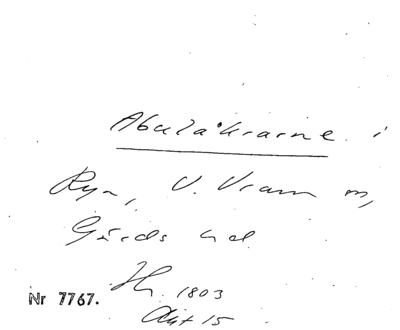 Abulåkrarne i
Ryr, V. Vram m,
Gärds hd
Hs. 1803
Akt 15
Nr 7767.